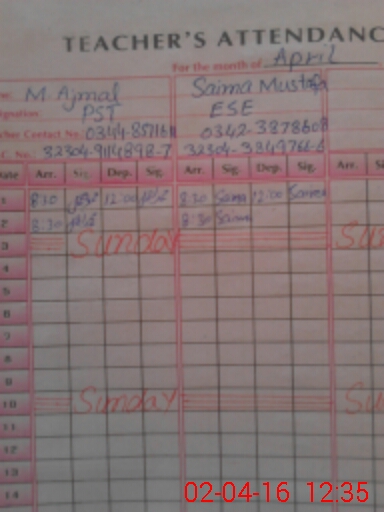 TEACHER'S ATTENDANC
For the month of April
M. Ajmal Saima Mustafa
PST ESE
Contact No. 0344-8571611 0342-3878608
C. No. 32304-9114898-7 32304-3849766-6
Date Arr. Sig. Dep. Sig. Arr. Sig. Dep. Sig. Arr. Si
1 8:30 12:00 8:30 Saima 12:00 Saima
2 8:30 8:30 Saima
3 Sunday Su
4
5
6
7
8
9
10 Sunday Su
11
12
13
14
02-04-16 12:35